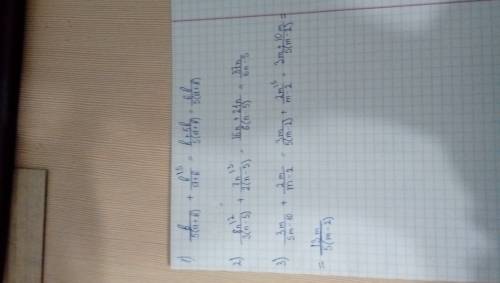 1) b/5(a+b) + b\5/a+b = b+5b/5(a+b) = 6b/5(a+b)
2) 8n\2/3(n-5) + 7n\3/2(n-5) = 16n+21n/6(n-5) = 37n/6n-5
3) 3m/5m-10 + 2m/m-2 = 3m/5(m-2) + 2m\5/m-2 = 3m+10m/5(m-2) =
= 13m/5(m-2)